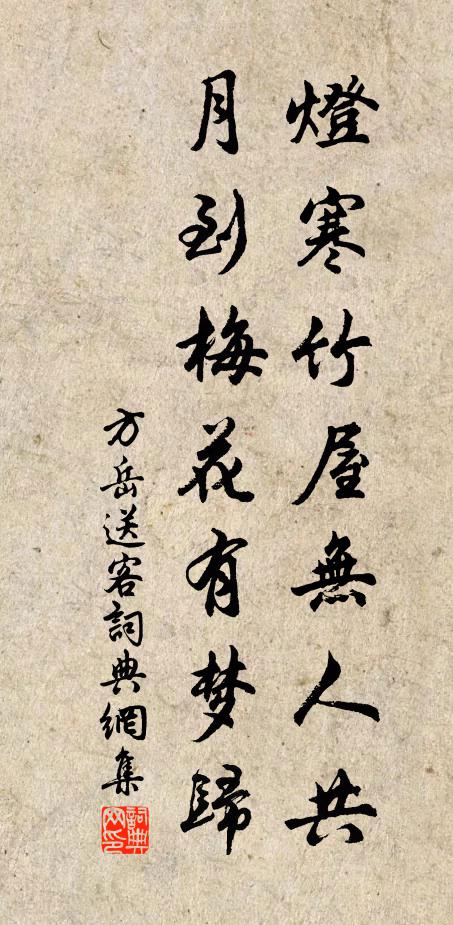 燈寒竹屋無人共
月到梅花有梦歸
方岳送客詞典網集
詞典网印